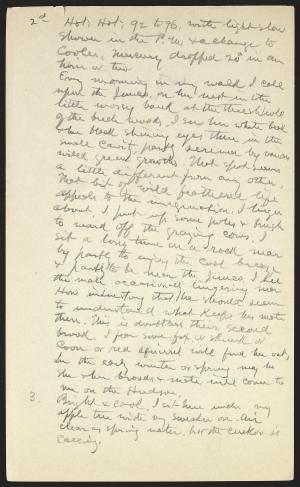 2d Hot, Hot, 92 to 96, with light slow
shower in the P.M. & a change to
cooler, mercury dropped 20° in an
hour or two.
Every morning in my walk I call
upon the Junco, on her nest in the
little mossy bank at the threshold
of the beech woods, I see her white beak
& her black shining eyes there in the
small cavity partly screened by various
wild green growths. That spot seems
a little different from any other.
That bit of wild feathered life
appeals to the imagination. I linger
about. I put up some poles & brush
to ward off the grazing cows. I
sit a long time on a rock near
by partly to enjoy the cool breeze
& partly to be near the Junco. I see
the male occasionally lingering near
How interesting that he should seem
to understand what keeps his mate
there. This is doubtless their second
brood. I fear some fox or skunk or
coon or red squirrel will find her out,
In the early winter or spring may be
she & her broods & mate will come to
me on the Hudson.
3. Bright & cool. I sit here under my
apple tree with my sweater on. Air
clear as spring water, but the cuckoo is
calling.